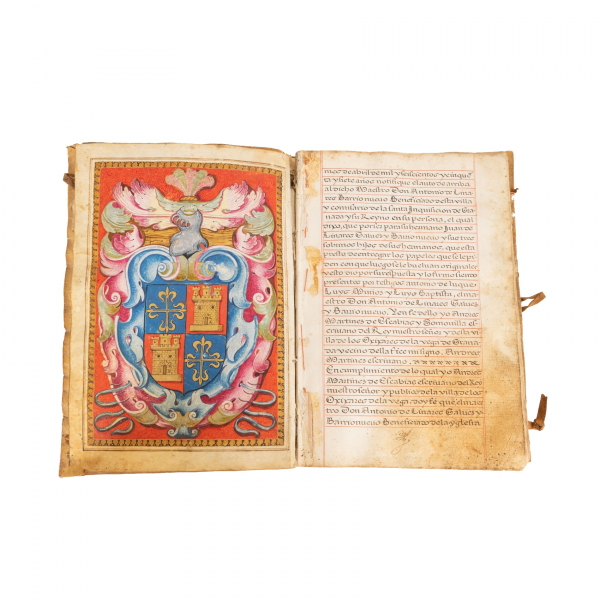 mos de abril de mil y seiscientos y cinquẽ
ta y siete años notifique el auto de arriba
al dicho Maestro Don Antonio de Lina
res Barrionuevo Beneficiado de la villa
y comisario de la santa Inquisicion de Gra
nada y su Reyno en su persona, el qual
dixo, que por es para su hermano Juan de
Linares Galves y Barrionuevo y sus tres
sobrinos hijos de sus hermanos, que esta
presto de entregar los papeles que se le pi
den con que luego se le buelvan originales
y esto dio por su respuesta y lo firmo siendo
presentes por testigos Antonio de luque
Luys Muños y Luys Baptista, el ma
estro Don Antonio de Linares Galves
y Barrionuevo. Yen fe dello yo Andres
Martines de Escabias y Somonilla es
crivano del Rey nuestro señor y de la vi
lla de los Oxixares de la vega de Grana
da y vecino della fice mi signo. Andres
Martines escrivano.
En cumplimiento de lo qual yo Andres
Martines de Escabias escrivano del Rey
nuestro señor y publico de la villa de los
Oxixares de la vega, doy fe que el mae
tro Don Antonio de Linares Galves y
Barrionuevo Beneficiado de la yglesia